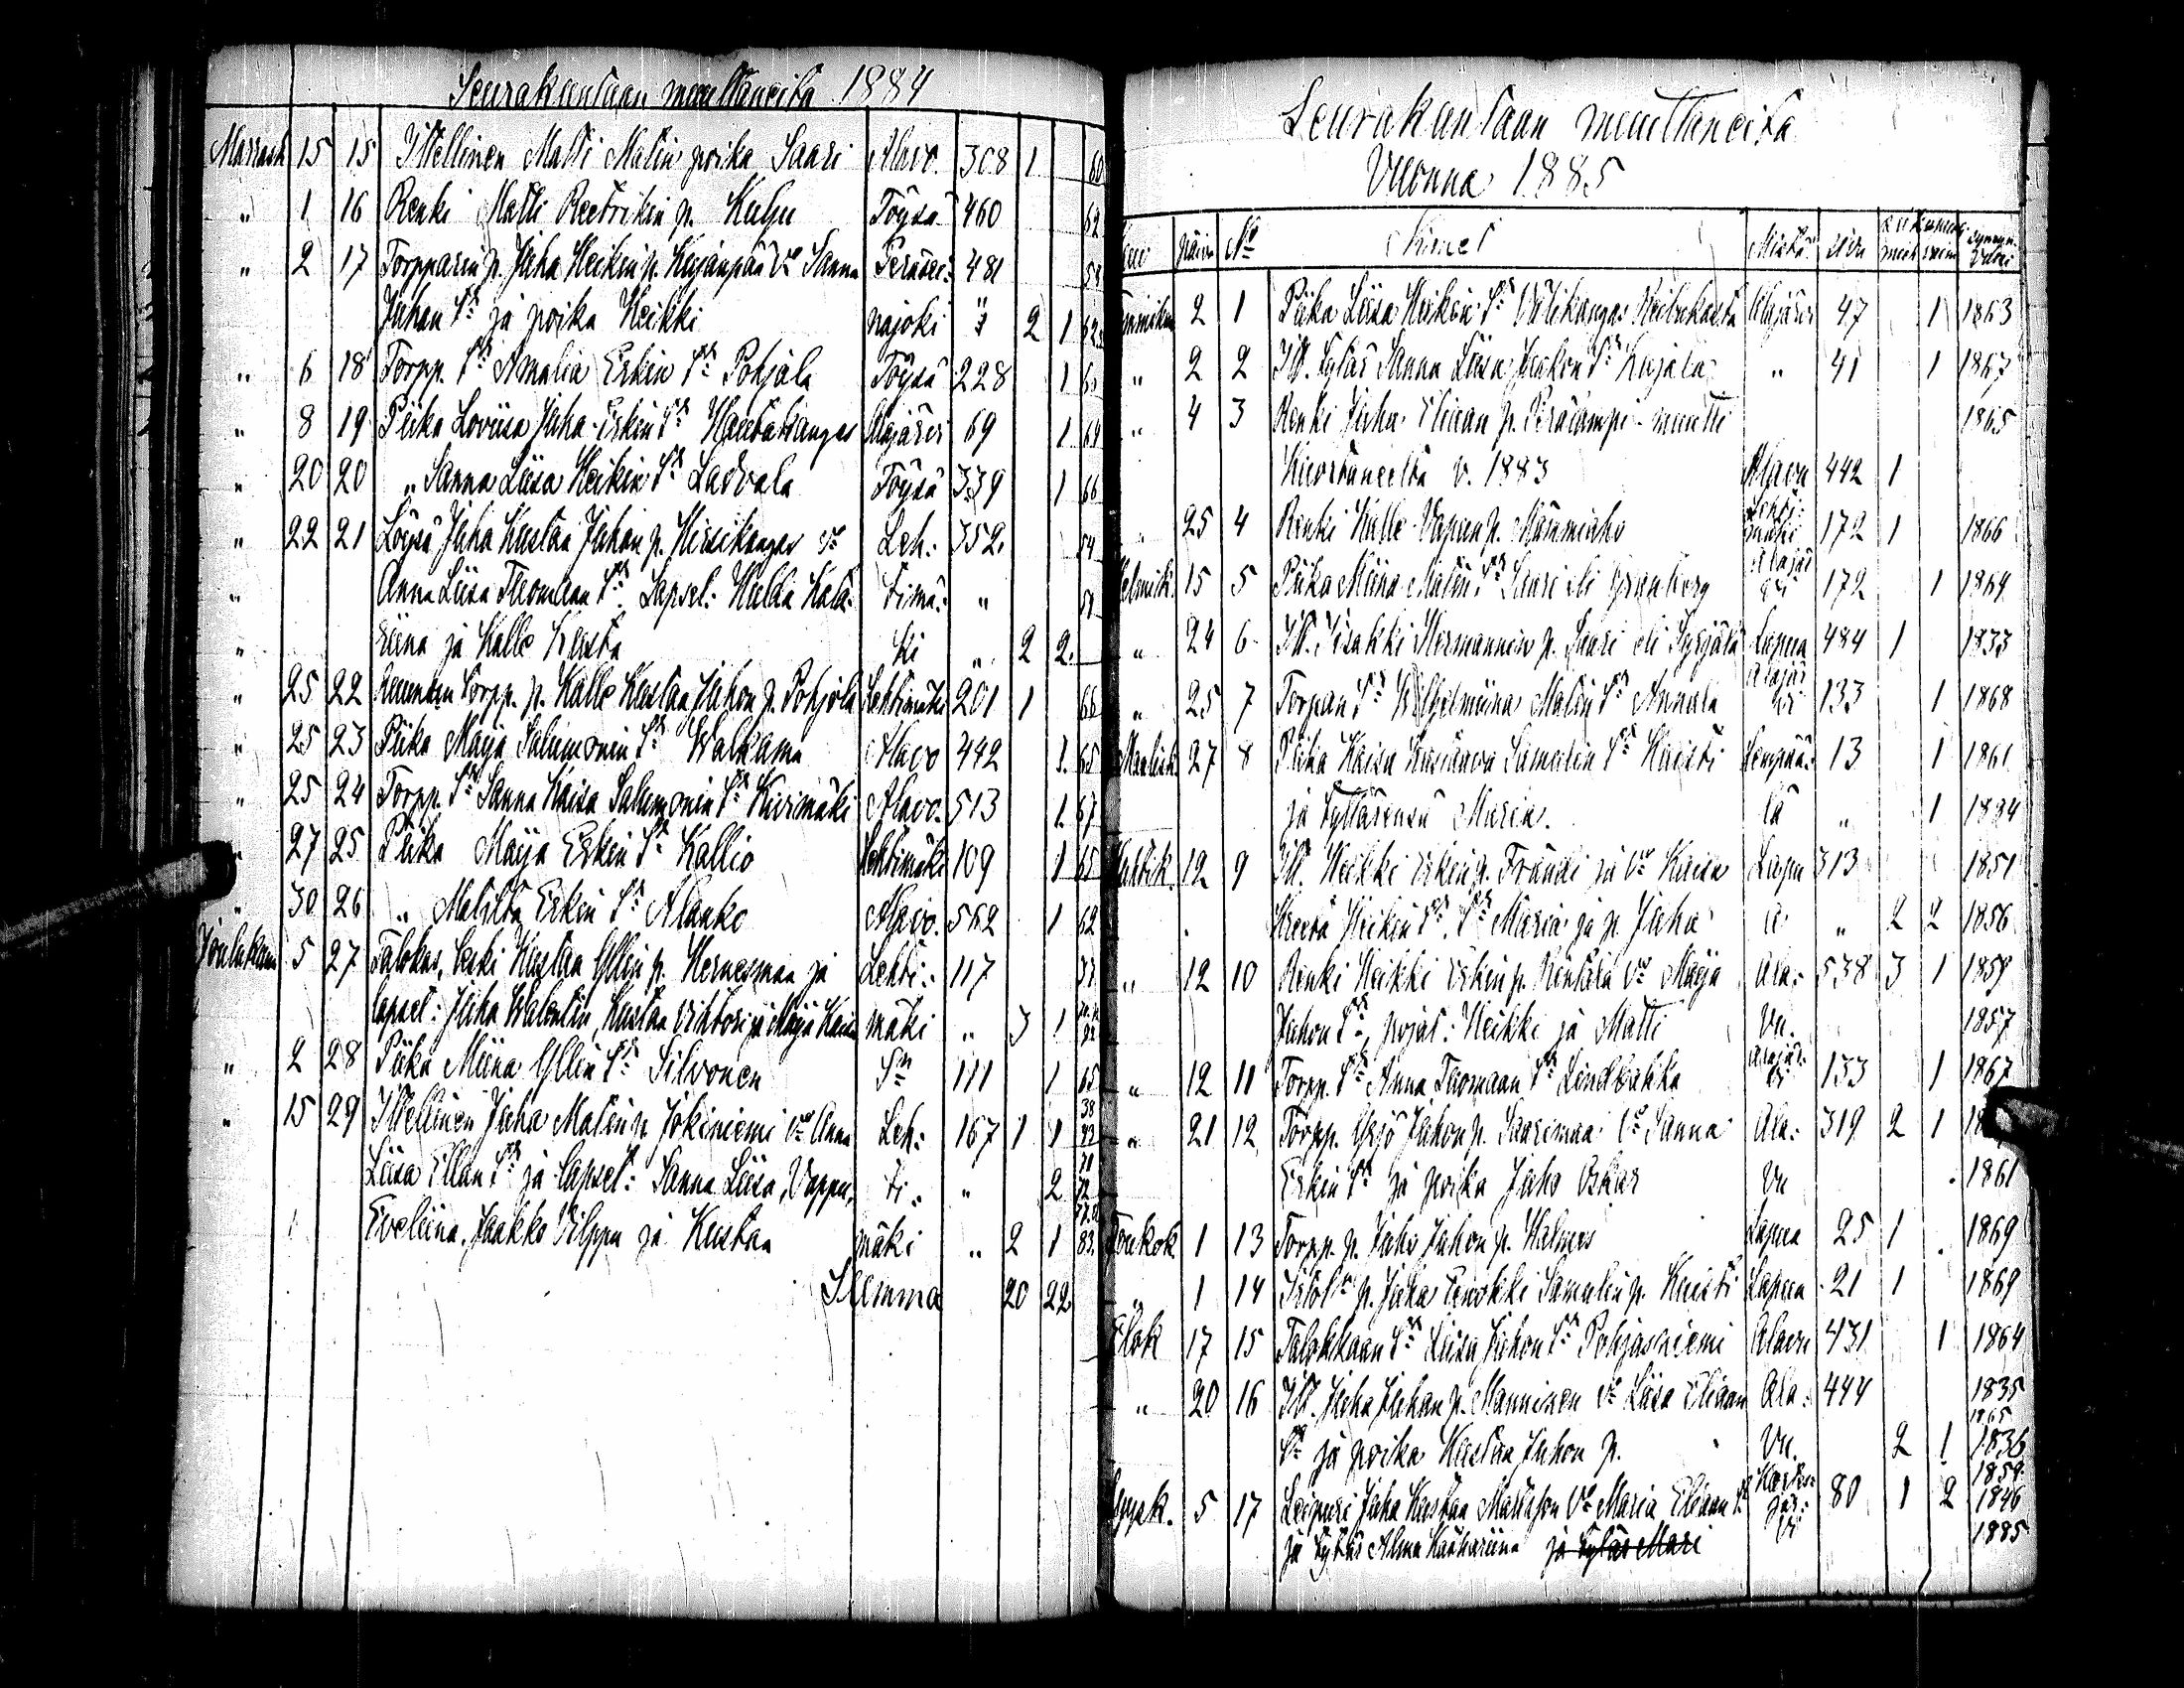 Seurakuntaan muuttaneita 1884
Marrask 15 15 Itellinen Matti Matin poika Saari Alavo. 308 1 60
" 1 16 Renki Matti Reetrikin p. Kulju Töysä 460 62
" 2 17 Torpparin p. Juha Heikin p. Kujanpää Vo Sanna Peräsei: 481 58
Juhan Sr ja poika Heikki najoki " 2 1
" 6 18 Torpp. Sr Amalia Erkin Sr Pohjala Töysä 228 1
" 8 19 Piika Loviisa Juha Erkin Sr Hautakangas Alajärvi 69 1 64
" 20 20 " Sanna Liisa Heikin Sr Ladvala Töysä 339 1 66
" 22 21 Löysä Juha Kustaa Juhan p. Hirsikangas Vo Leh: 352. 54
" Anna Liisa Tuomaan Sr Lapset: Hulda Kata: timä: "
" riina ja Kalle Kusta ki " 2 2.
" 25 22 Torpp. p. Kalle Kustaa Juhon p. Pohjola Lehtimäki 201 1 66
" 25 23 Piika Maija Salumonin Sr Walkama Alavo 442 1. 65
" 25 24 Torpp. Sr Sanna Kaisa Salumonin Sr Kivimäki Alavo. 513 1. 67
" 27 25 Piika Maija Erkin Sr Kallio Lehtimäki 109 1 65
" 30 26 " Matilta Erkin Sr Alanko Alavo. 562 1 62
Joulukuu 5 27 Talokas, leski Kustaa Yllin p. Hernesmaa ja Lehti: 117
lapset: Juha Walentin, Kustaa Vihtori ja Maija Kaisa mäki " 3 1
" 2 28 Piika Miina Yllin Sr Silvonen Sn 111 1 65
" 15 29 Itellinen Juha Matin p. Jokiniemi Vo Anna Leh: 167 1 1 38
Liisa Ellan Sr ja lapset: Sanna Liisa, Vappu, ti: " 2
Eveliina, Jaakko Vilppu ja Kustaa mäki " 2 1 83.
Summa 20 22
Seurakuntaan muuttaneita
Vuonna 1885
Kuu Päivä No Nimet Mistä sivu miesp vaimop syntym. vuosi
Tammikuu 2 1 Piika Liisa Heikin Sr Välikangas Alajärvi 47 1 1863
" 2 2 Itl. tytär Sanna Liisa Jaakon Sr Kujala " 41 1 1867
" 4 3 Renki Juha Eliaan p. Perälampi muutti 1865
Kuortaneelta v. 1883 Alavu 442 1
" 25 4 Renki Kalle Vapun p. Mamminaho Lehtimäki 172 1 1866
Helmik. 15 5 Piika Miina Matin Sr Saari eli Granberg Alajärvi 172 1 1864
" 24 6 Itl. Iisakki Hermannin p. Saari eli Syrjälä Lapua 484 1 1833
" 25 7 Torpan Sr Wilhelmiina Matin Sr Annala Alajärvi 133 1 1868
Maalisk. 27 8 Piika Kaisa Susanna Samulin Sr Kuisti Lempää: 13 1 1861
ja tyttärensä Maria. lä " 1 1884
Huhtik. 12 9 Itl. Heikki Erkin p. Frändi ja Vo Kaisa Lapu 313 1851
Kreeta Heikin Sr. Sr Maria ja p. Juha a " 2 2 1856
" 12 10 Renki Heikki Erkin p. Rentola Vo Maija Ala: 538 3 1 1859
Juhon Sr, pojat: Heikki ja Matti vu. 1857
" 12 11 Torpp. Sr Anna Tuomaan Sr Lindbakka Alajärvi 133 1 1867
" 21 12 Torpp. Yrjö Juhon p. Saarimaa Vo Sanna Ala: 319 2 1
Erkin Sr ja poika Juho Oskar vu 1861
Toukok 1 13 Torpp. p. Juho Juhon p. Walmes Lapua 25 1 1869
" 1 14 p. Juha Eenokki Samulin p. Kuisti Lapua 21 1 1869
Elok 17 15 Talokkaan Sr Liisa Juhon Sr Pohjasniemi Alavu 431 1 1864
" 20 16 Itl. Juha Juhan p. Manninen Vo Liisa Eliaan Ala: 444 1835
1865
Sr ja poika Kustaa Juhon p. vu. 2 1 1836
Syysk. 5 17 Leipuri Juha Kustaa Mattsson Vo Maria Eliaan Sr 80 1 2 1859 1846
ja tytär Alma Katariina ja tytär Mari 1885